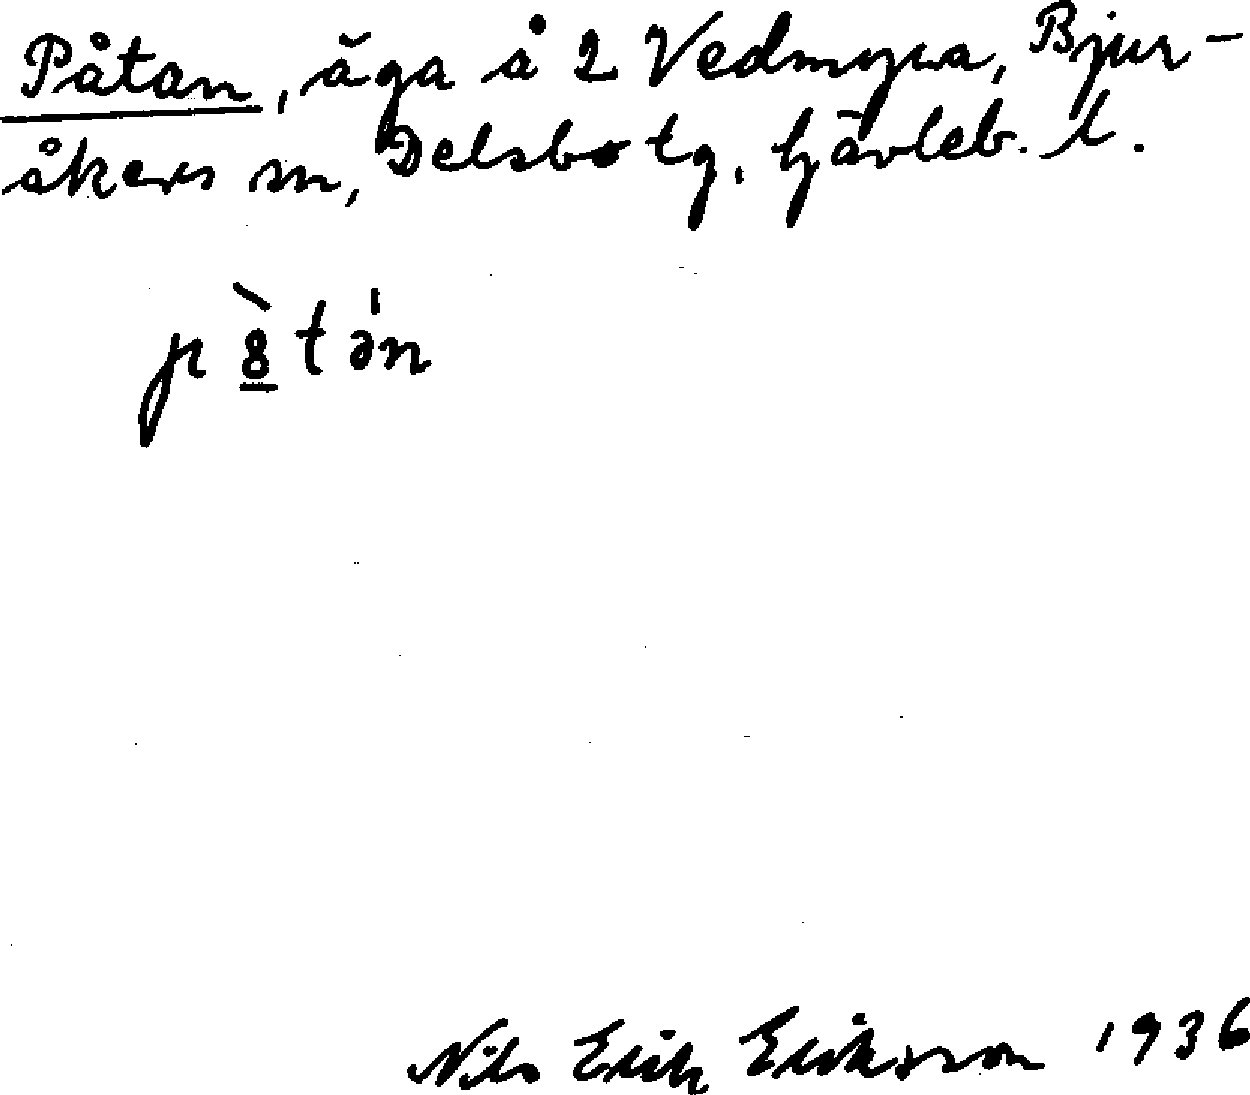 Påtan, äga å 2 Vedmyra, Bjur-
åkers sn, Delsbo tg, Gävleb. l.
p8̲̀tə̍n
Nils Erik Eriksson 1936